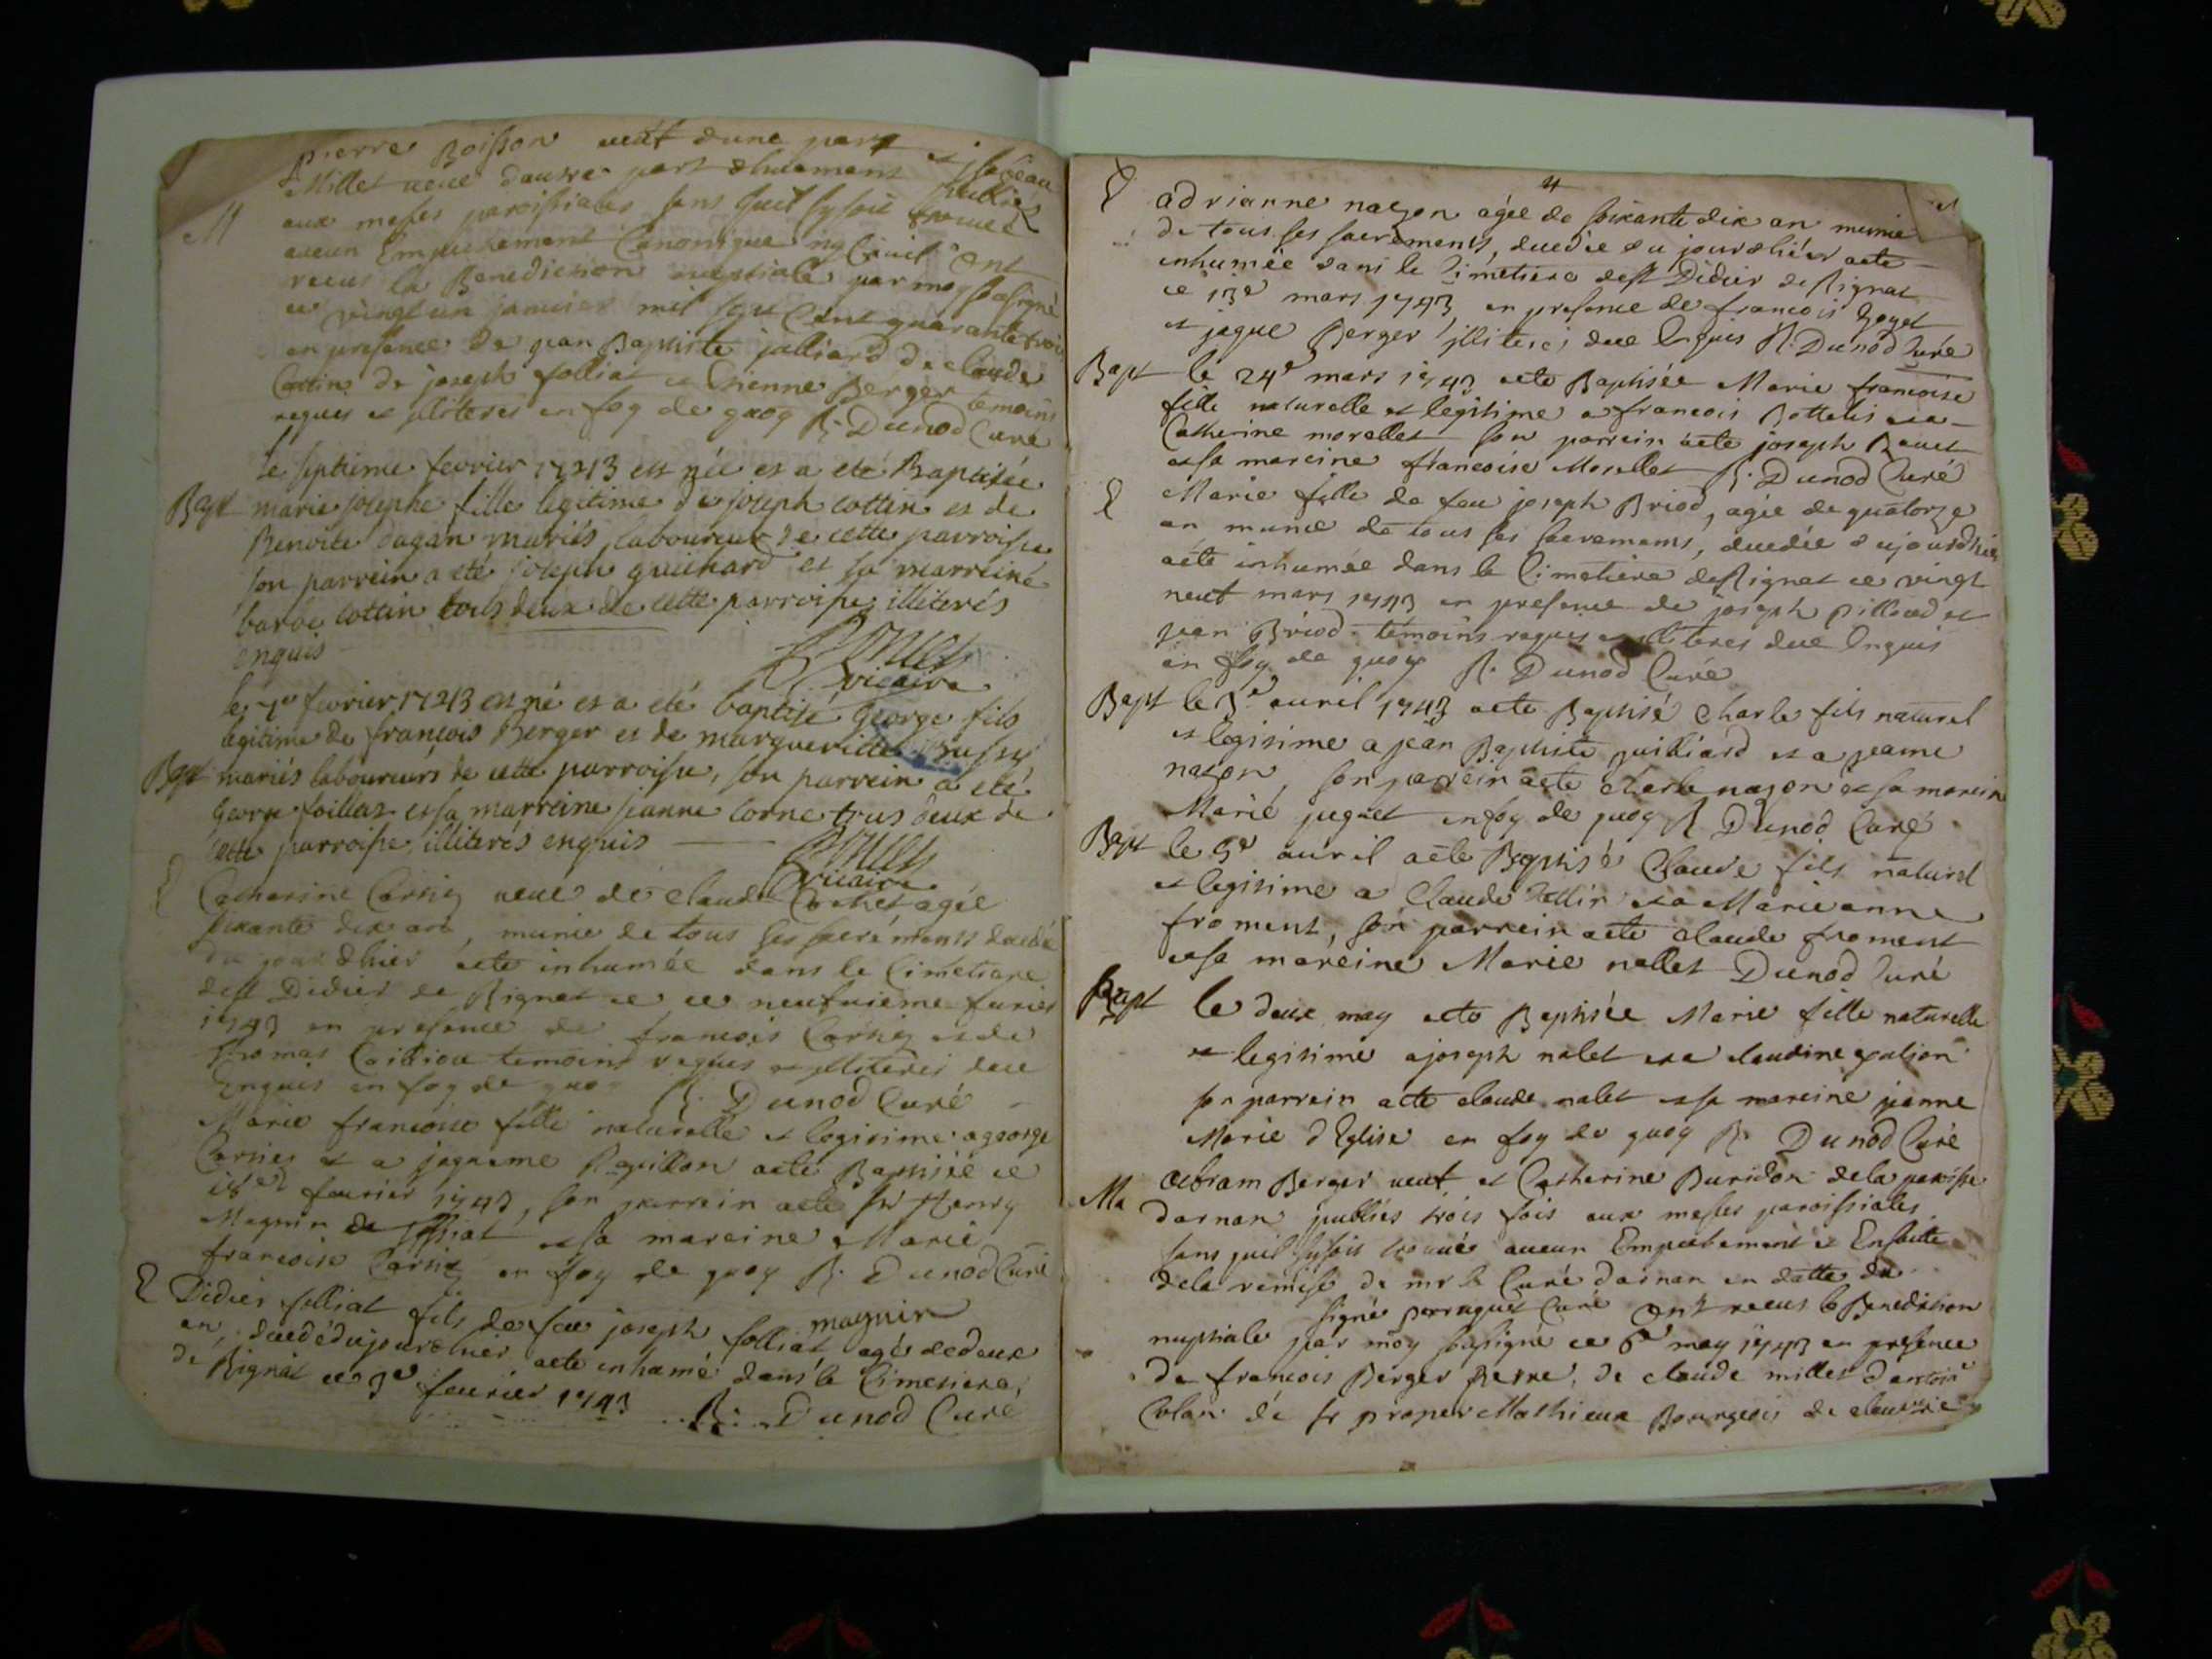 pierre Boisson veuf dune part et isabeau
Millet veuve dautre part dhuement publiés
M aux messes paroissiales sans quil sy soit trouvé
aucun Empechement Canonique ny Civil ont
recus la Benediction nuptiale par moy soussigné
ce vingt un janvier mil sept Cent quarante trois
en presence de jean Baptiste jalliard de claude
Cottin de joseph folliat et Etienne Berger temoins
requis et illiterés en foy de quoy R. Dunod Curé
le septieme fevrier 1743 est née et a eté Baptisée
Bapt marie josephe fille legitime de joseph cottin et de
Benoite dagan mariés laboureur de cette parroisse
son parrein a eté joseph guichard et sa marreine
barbe cottin tous deux de cette parroisse illiterés
enquis
vicaire
le 7e fevrier 1743 est né et a eté baptisé George fils
legitime de françois Berger et de marguerite
Bapt mariés laboureurs de cette parroisse, son parrein a eté
George foillat et sa marreine jeanne Corne tous deux de
cette parroisse illiterés enquis
vicaire
E Catherine Carrier veuve de claude Cochet agée
soixante dix ans, munie de tous ses sacrements decedé
du jour dhier aeté inhumée dans le Cimetiere
de st Didier de Rignat ce neufvieme fevrier
1743 en presence de francois et de
Thomas temoins requis et illiterés de ce
Enquis en foy de quoy R. Dunod Curé
Marie francoise fille naturelle et legitime a george
Carrier et a jaqueme Papillon aeté Baptisée ce
fevrier 1743, son parrein aeté sr Henry
Magnin et sa mareine Marie
francoise en foy de quoy R. Dunod Curé
magnin
E Didier folliat fils de feu joseph folliat agé de deux
an, decedé du jour dhier aeté inhumé dans le Cimetiere
de Rignat ce 3e fevrier 1743 R. Dunod Curé
4
E adrianne nazon agée de soixante dix an munie
de tous ses sacrements, decedée du jour dhier aeté
inhumée dans le Cimetiere de st Didier de Rignat
ce 13e mars 1743 en presence de francois Goyet
et jaque Berger illiterés de ce Enquis R. Dunod Curé
Bapt le 24e mars 1743 aeté Baptisée Marie francoise
fille naturelle et legitime a francois et a
Catherine morellet son parrein aeté joseph
et sa mareine francoise Morellet R. Dunod Curé
E Marie fille de feu joseph Briod, agée de quatorze
an munie de tous ses sacrements, decedée dujourdhier
aeté inhumée dans le Cimetiere de Rignat ce vingt
neuf mars 1743 en presence de joseph pilloud et
jean Briod témoins requis et illiteres de ce Enquis
en foy de quoy R. Dunod Curé
Bapt le 3e avril 1743 aeté Baptisé Charle fils naturel
et legitime a jean Baptiste juilliard et a jeanne
nazon, son parrein aeté charle nazon et sa mareine
Marie juguet en foy de quoy R Dunod Curé
Bapt le 5e avril aeté Baptisé Claude fils naturel
et legitime a Claude et a Marieanne
froment, son parrein aeté claude froment
et sa mareine Marie nallet Dunod Curé
Bapt le deux may aeté Baptisée Marie fille naturelle
et legitime a joseph nalet et a claudine
son parrein aeté claude nalet et sa mareine jeanne
Marie d'Eglise en foy de quoy R. Dunod Curé
abram Berger veuf et Catherine Buridon de la paroisse
Ma darnan publiés trois fois aux messes paroissiales
sans quil sy soit trouvé aucun Empechement et Ensuitte
de la remise de mr le Curé darnan en datte du
signé perruquet Curé ont recus la Benediction
nuptiale par moy soussigné ce 6e may 1743 en presence
de francois Berger Pierre, de claude millet dantoine
Colan de sr proper Mathieux Bourgeois de